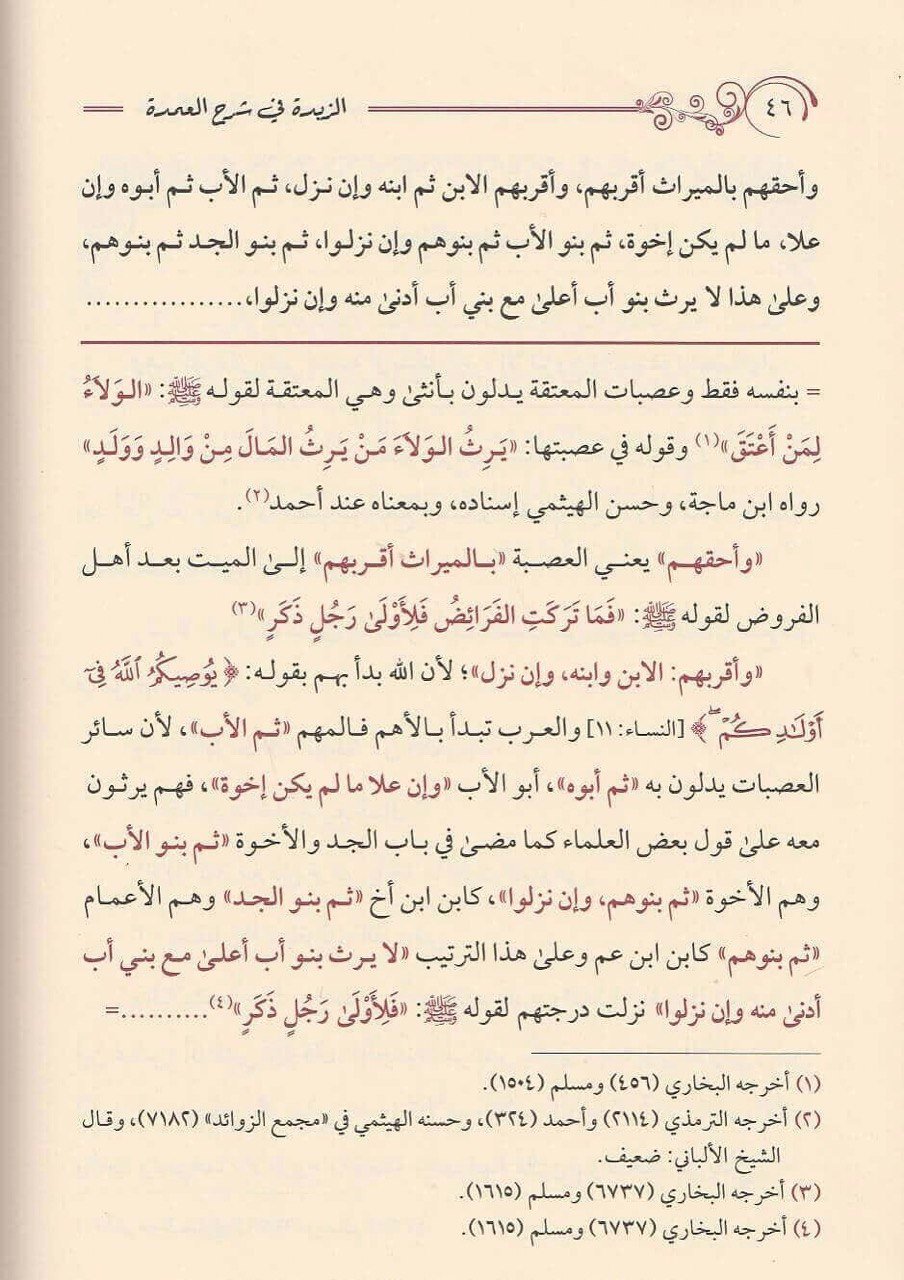 ٤٦
الزبدة في شرح العمدة
وأحقهم بالميراث أقربهم، وأقربهم الابن ثم ابنه وإن نزل، ثم الأب ثم أبوه وإن
علا، ما لم يكن إخوة، ثم بنو الأب ثم بنوهم وإن نزلوا، ثم بنو الجد ثم بنوهم،
وعلىٰ هذا لا يرث بنو أب أعلىٰ مع بني أب أدنىٰ منه وإن نزلوا،.................
= بنفسه فقط وعصبات المعتقة يدلون بأنثىٰ وهي المعتقة لقوله ﷺ: «الوَلاَءُ
لِمَنْ أَعْتَقَ»(١) وقوله في عصبتها: «يَرِثُ الوَلاَءَ مَنْ يَرِثُ المَالَ مِنْ وَالِدٍ وَوَلَدٍ»
رواه ابن ماجة، وحسن الهيثمي إسناده، وبمعناه عند أحمد(٢).
«وأحقهم» يعني العصبة «بالميراث أقربهم» إلىٰ الميت بعد أهل
الفروض لقوله ﷺ: «فَمَا تَرَكَتِ الفَرَائِضُ فَلِأَوْلَىٰ رَجُلٍ ذَكَرٍ»(٣)
«وأقربهم: الابن وابنه، وإن نزل»؛ لأن الله بدأ بهم بقوله: ﴿يُوصِيكُمُ ٱللَّهُ فِيٓ
أَوۡلَٰدِكُمۡۖ﴾ [النساء: ١١] والعرب تبدأ بالأهم فالمهم «ثم الأب»، لأن سائر
العصبات يدلون به «ثم أبوه»، أبو الأب «وإن علا ما لم يكن إخوة»، فهم يرثون
معه علىٰ قول بعض العلماء كما مضىٰ في باب الجد والأخوة «ثم بنو الأب»،
وهم الأخوة «ثم بنوهم، وإن نزلوا»، كابن ابن أخ «ثم بنو الجد» وهم الأعمام
«ثم بنوهم» كابن ابن عم وعلىٰ هذا الترتيب «لا يرث بنو أب أعلىٰ مع بني أب
أدنىٰ منه وإن نزلوا» نزلت درجتهم لقوله ﷺ: «فَلِأَوْلَىٰ رَجُلٍ ذَكَرٍ»(٤)..........=
(١) أخرجه البخاري (٤٥٦) ومسلم (١٥٠٤).
(٢) أخرجه الترمذي (٢١١٤) وأحمد (٣٢٤)، وحسنه الهيثمي في «مجمع الزوائد» (٧١٨٢)، وقال
الشيخ الألباني: ضعيف.
(٣) أخرجه البخاري (٦٧٣٧) ومسلم (١٦١٥).
(٤) أخرجه البخاري (٦٧٣٧) ومسلم (١٦١٥).